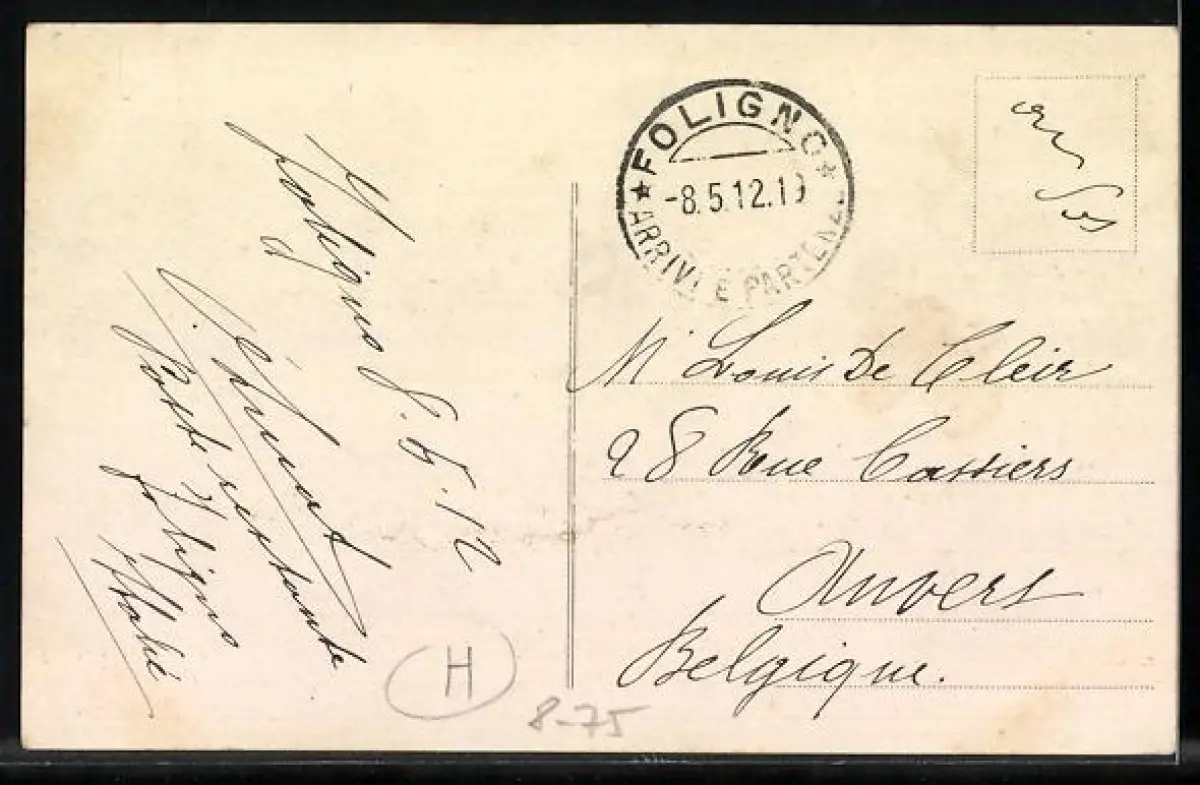 Foligno 8.5.12
Poste restante
Foligno
Italie
FOLIGNO
-8.5.12.19
ARRIVI E PARTENZE
Mr Louis De Cleir
28 Rue Cassiers
Anvers
Belgique.
H
8-75